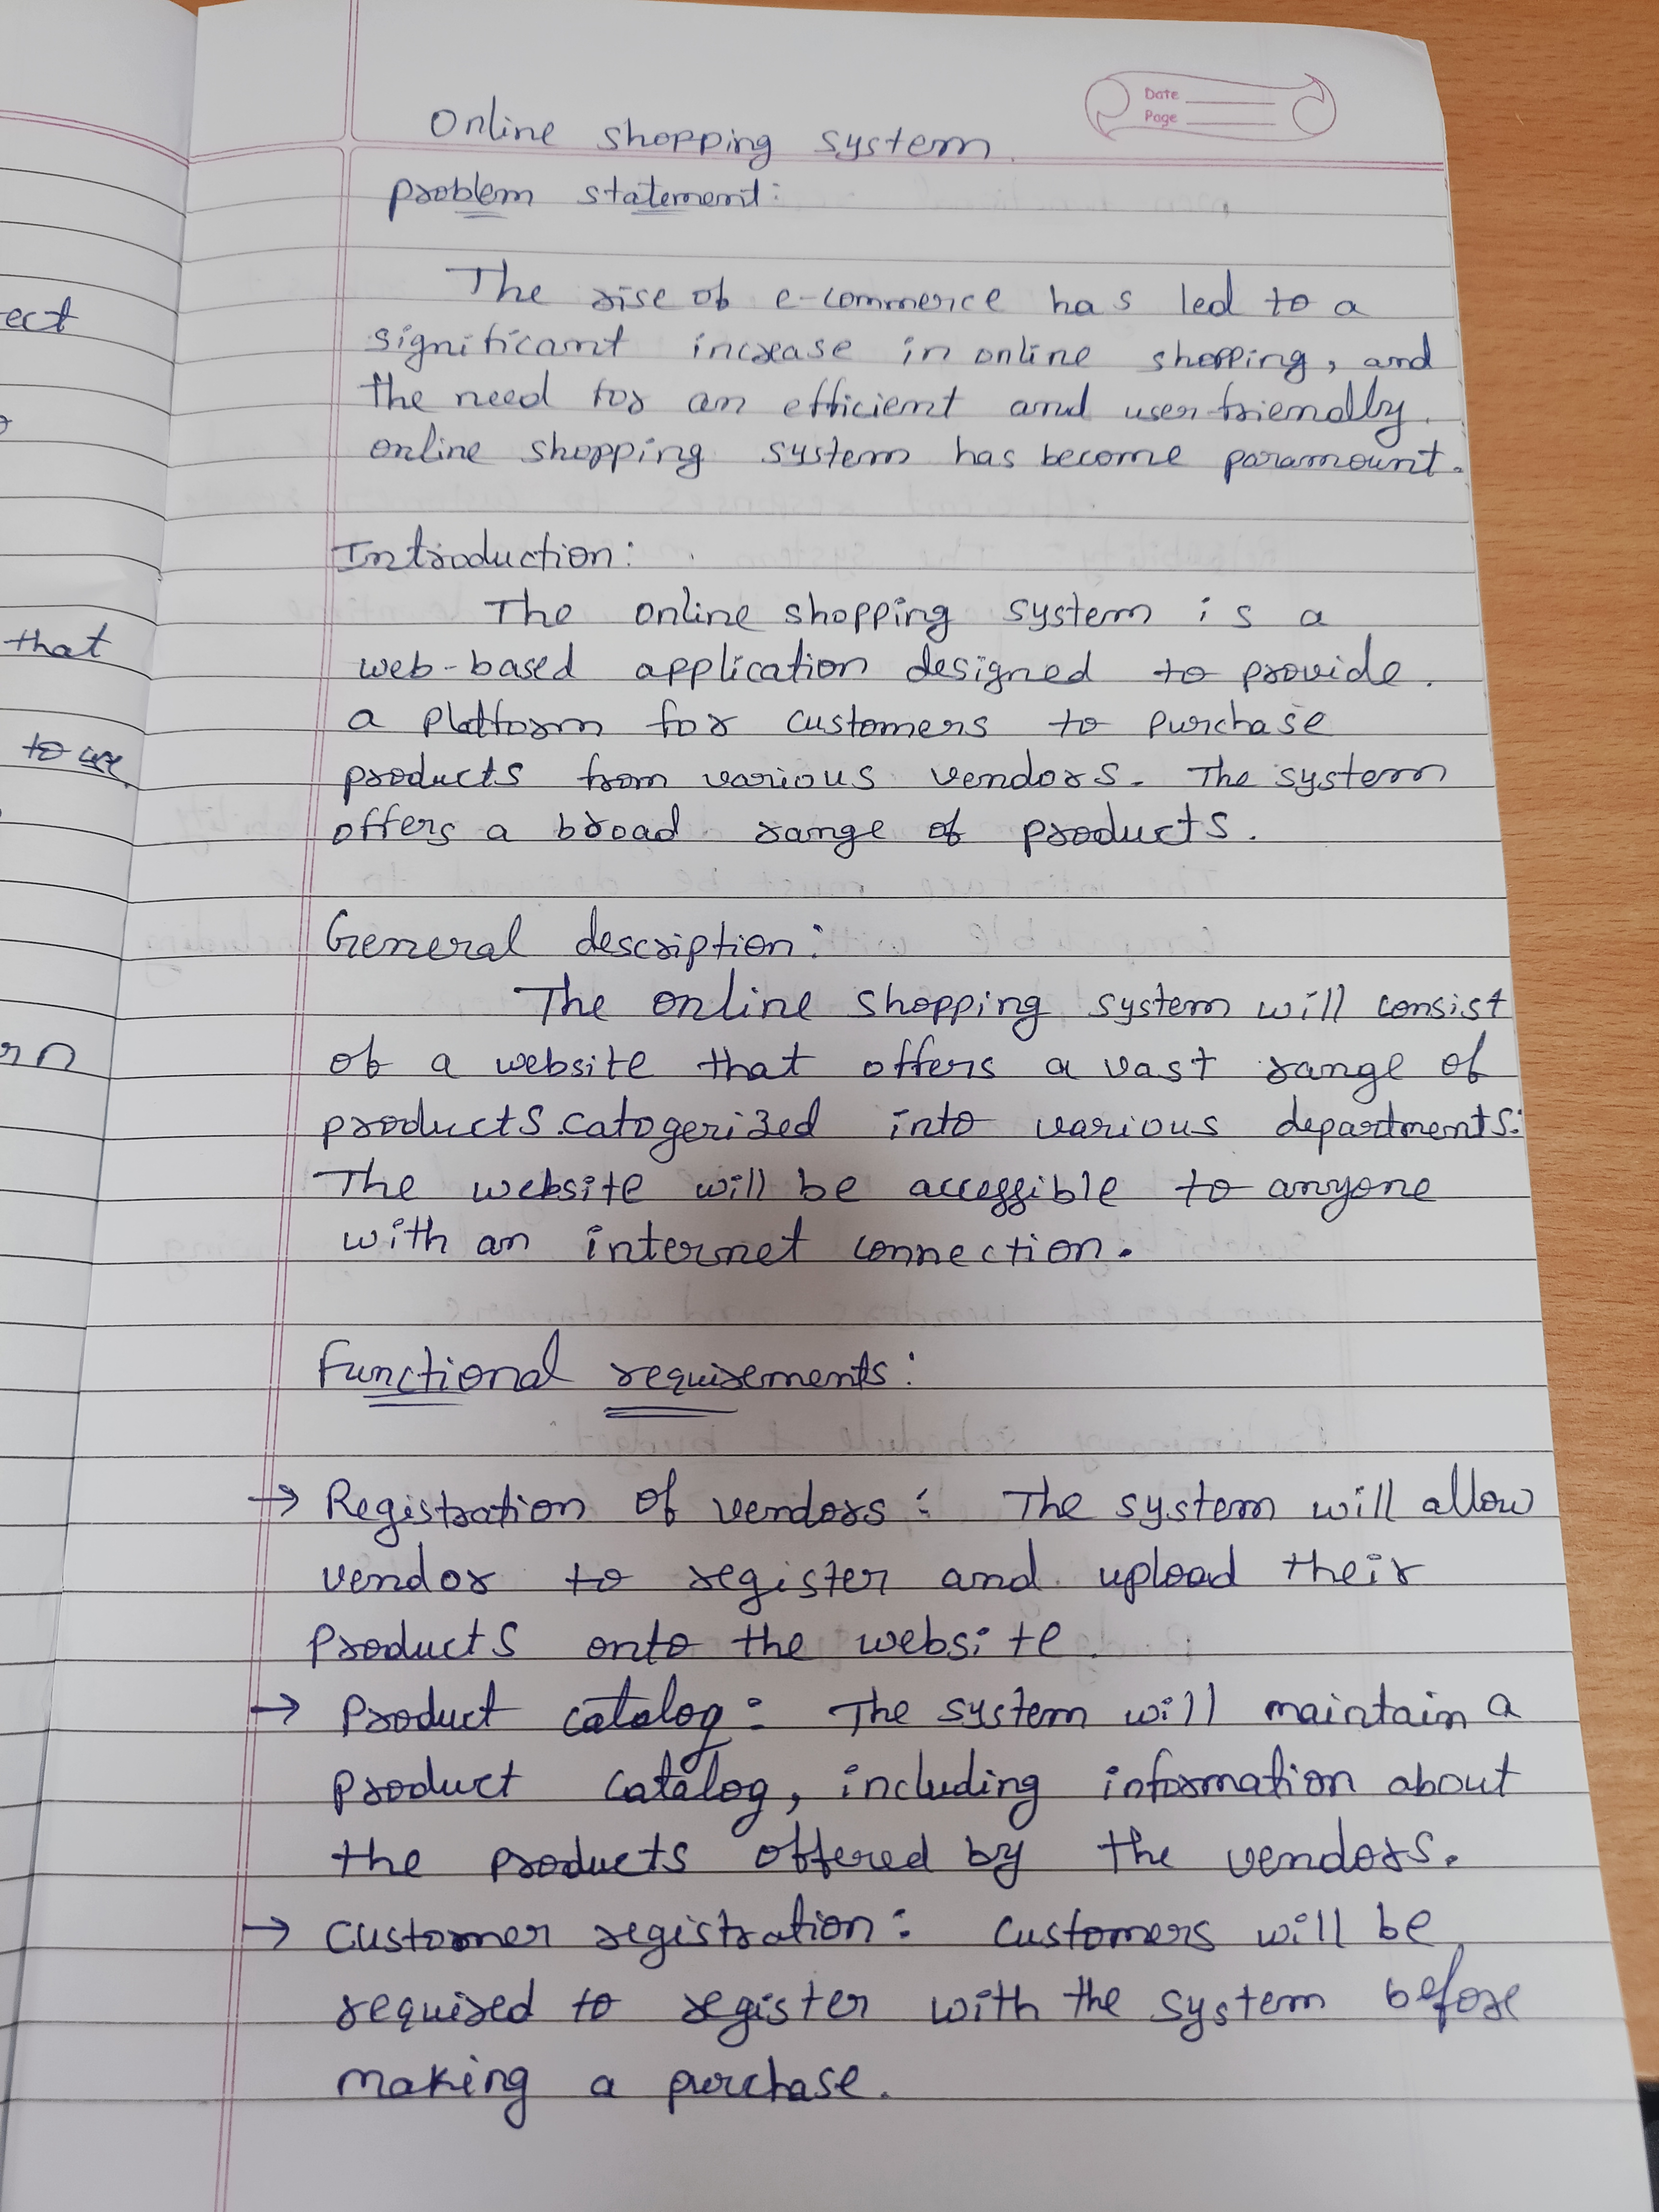 Date
Page
Online shopping system
problem statement:
The rise of e-commerce has led to a
significant increase in online shopping, and
the need for an efficient and user-friendly
online shopping system has become paramount.
Introduction:
The online shopping system is a
web-based application designed to provide.
a platform for customers to purchase
products from various vendors. The system
offers a broad range of products.
General description:
The online shopping system will consist
of a website that offers a vast range of
products catogerized into various departments.
The website will be accessible to anyone
with an internet connection.
Functional requirements:
→ Registration of vendors: The system will allow
vendor to register and upload their
products onto the website.
→ Product catalog: The system will maintain a
product catalog, including information about
the products offered by the vendors.
→ Customer registration: Customers will be
required to register with the system before
making a purchase.
ect
that
to use